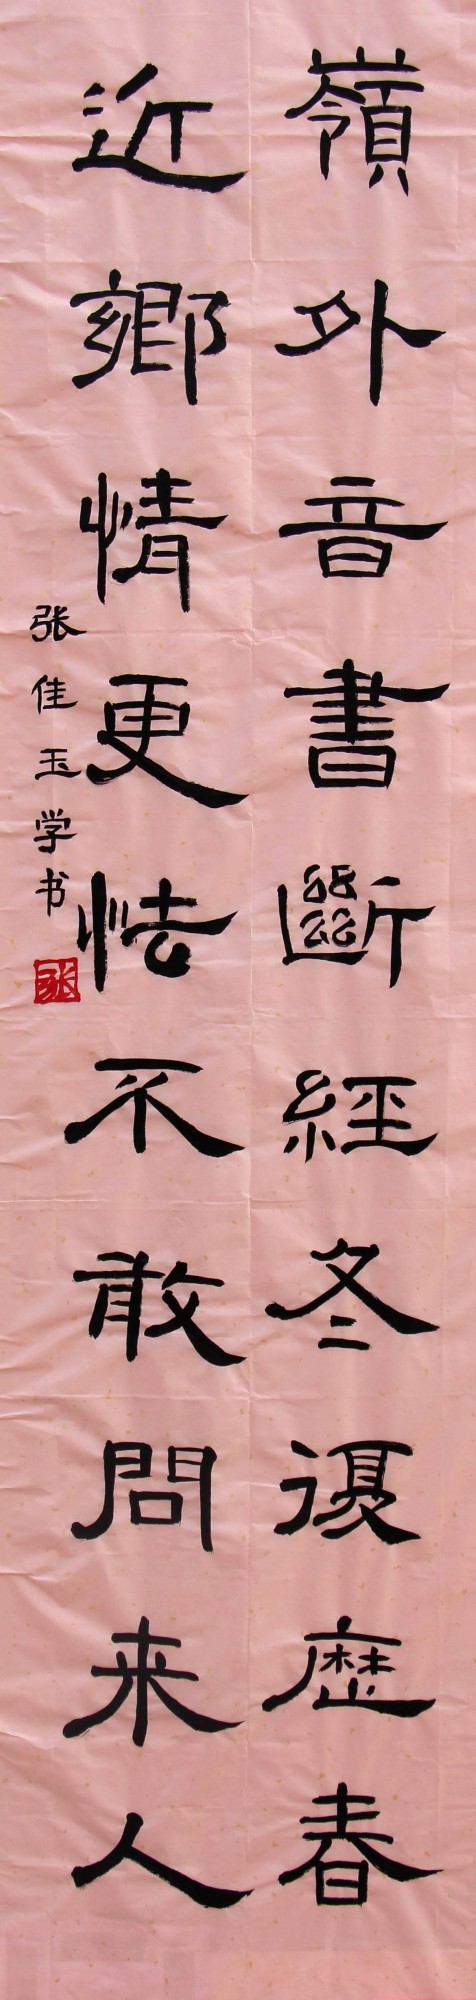 嶺外音書斷經冬復歷春
近鄉情更怯不敢問来人
张佳玉学书
张